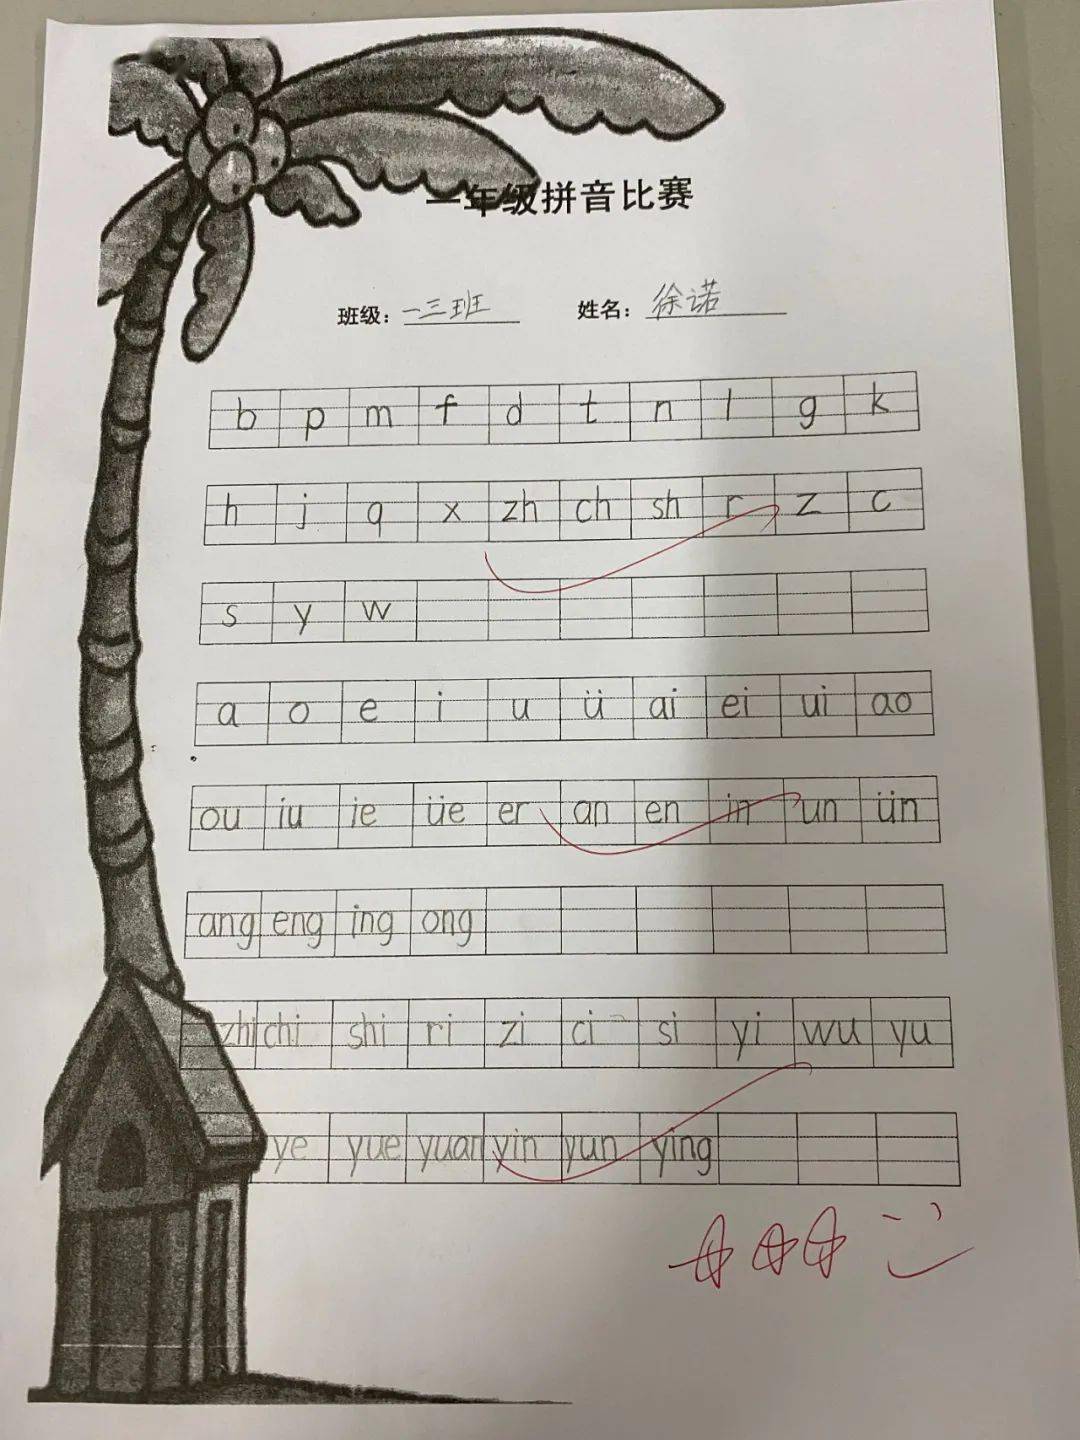 一年级拼音比赛
班级：一三班 姓名：徐诺
b p m f d t n l g k
h j q x zh ch sh r z c
s y w
a o e i u ü ai ei ui ao
ou iu ie üe er an en in un ün
ang eng ing ong
zhi chi shi ri zi ci si yi wu yu
ye yue yuan yin yun ying